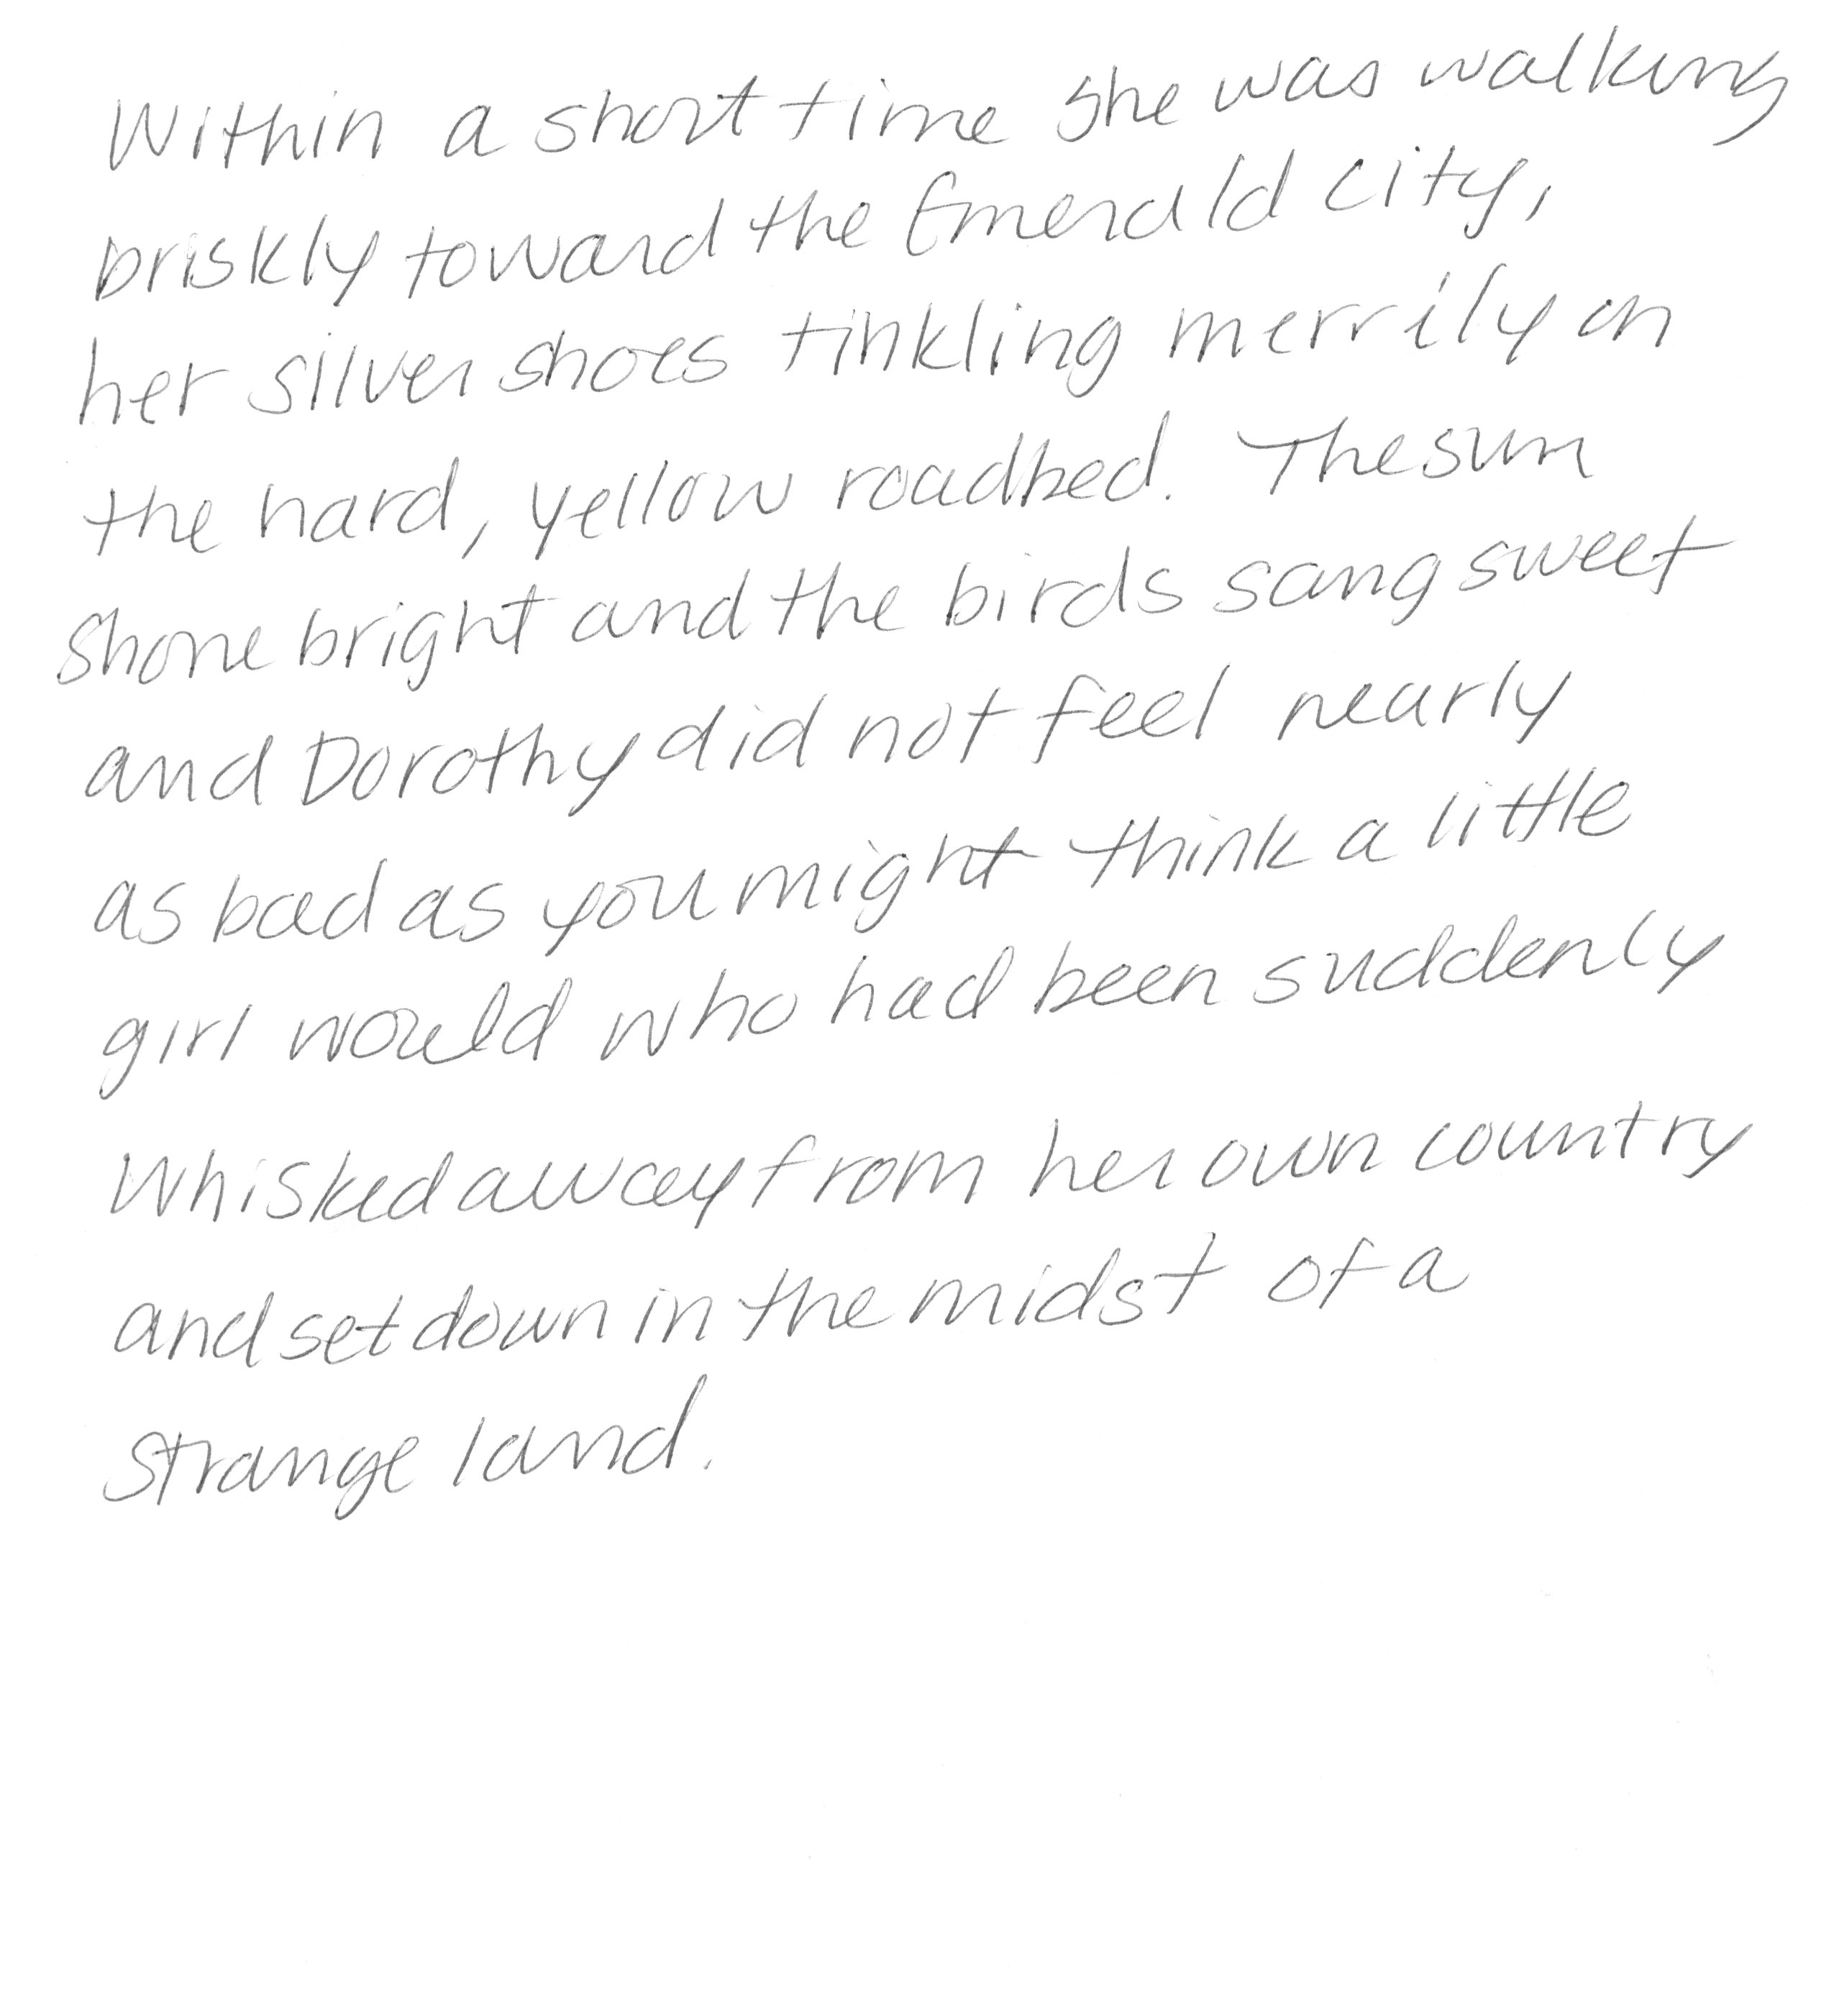 Within a short time she was walking
briskly toward the Emerald City,
her silver shoes tinkling merrily on
the hard, yellow roadbed. The sun
shone bright and the birds sang sweet
and Dorothy did not feel nearly
as bad as you might think a little
girl would who had been suddenly
whisked away from her own country
and set down in the midst of a
strange land.